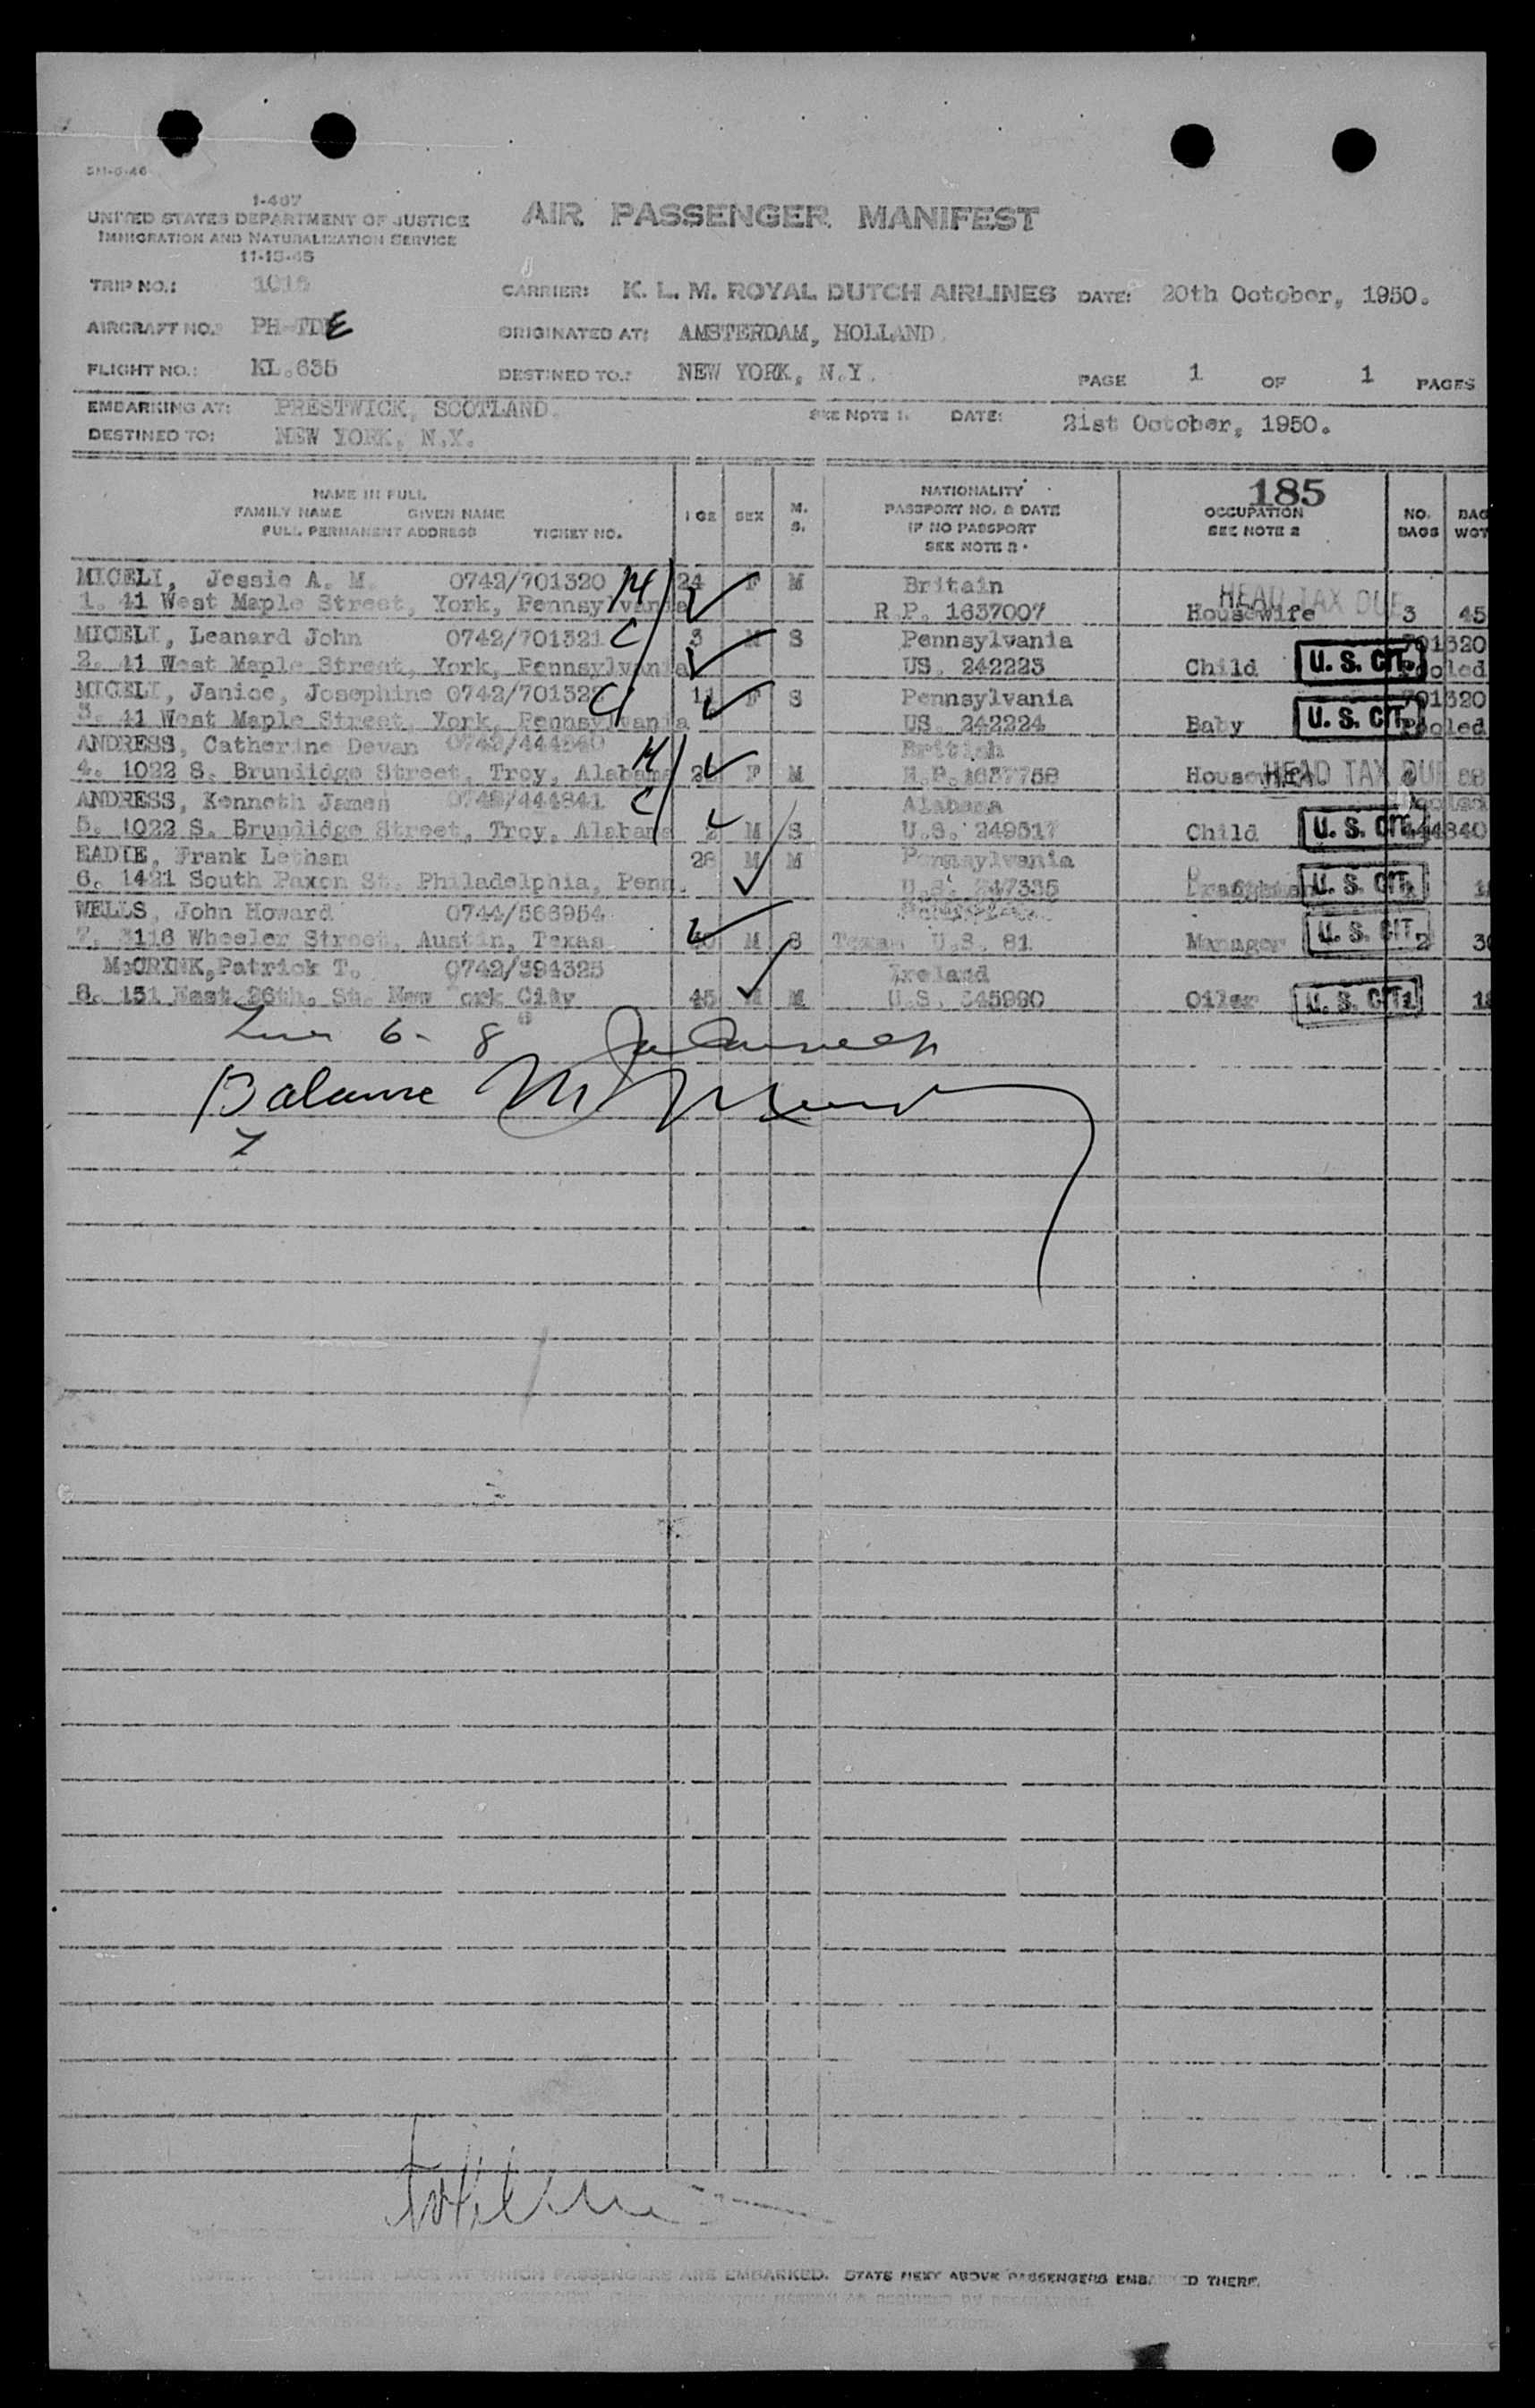 5M-6-46
I-467
UNITED STATES DEPARTMENT OF JUSTICE
IMMIGRATION AND NATURALIZATION SERVICE
11-15-45
AIR PASSENGER MANIFEST
TRIP NO.:
CARRIER: K. L. M. ROYAL DUTCH AIRLINES DATE: 20th October, 1950.
AIRCRAFT NO.: PH-TDE ORIGINATED AT: AMSTERDAM, HOLLAND.
FLIGHT NO.: KL.635 DESTINED TO.: NEW YORK, N.Y. PAGE 1 OF 1 PAGES
EMBARKING AT: PRESTWICK, SCOTLAND. SEE NOTE 1. DATE: 21st October, 1950.
DESTINED TO: NEW YORK, N.Y.
185
NAME IN FULL
FAMILY NAME GIVEN NAME
FULL PERMANENT ADDRESS TICKET NO.
AGE SEX M. S.
NATIONALITY
PASSPORT NO. & DATE
IF NO PASSPORT
SEE NOTE 2
OCCUPATION
SEE NOTE 2
NO. BAGS
BAG WGT
MICELI, Jessie A. M. 0742/701320 M 24 F M Britain HEAD TAX DUE
1. 41 West Maple Street, York, Pennsylvania R.P. 1637007 Housewife 3 45
MICELI, Leanard John 0742/701321 C 3 M S Pennsylvania 701320
2. 41 West Maple Street, York, Pennsylvania US. 242223 Child U. S. CIT. Pooled
MICELI, Janice, Josephine 0742/701322 C 11 F S Pennsylvania 701320
3. 41 West Maple Street, York, Pennsylvania US. 242224 Baby U. S. CIT. Pooled
ANDRESS, Catherine Devan 0742/444840 M British
4. 1022 S. Brundidge Street, Troy, Alabama F M R.P.1637758 Housewife HEAD TAX DUE 58
ANDRESS, Kenneth James 0742/444841 C Alabama Pooled
5. 1022 S. Brundidge Street, Troy, Alabama 2 M S U.S. 249517 Child U. S. CIT. 444840
EADIE, Frank Letham 28 M M Pennsylvania
6. 1421 South Paxon St. Philadelphia, Penn. U.S. 247335 Draftsman U. S. CIT.
WELLS, John Howard 0744/566954
7. 3116 Wheeler Street, Austin, Texas M S Texas U.S. 81 Manager U. S. CIT. 2
McCRINK, Patrick T. 0742/394325 Ireland
8. 151 East 26th. St. New York City 45 M M U.S. 345990 Oiler U. S. CIT. 1
6 - 8
Balance
7
OTHER PLACE AT WHICH PASSENGERS ARE EMBARKED. STATE NEXT ABOVE PASSENGERS EMBARKED THERE.